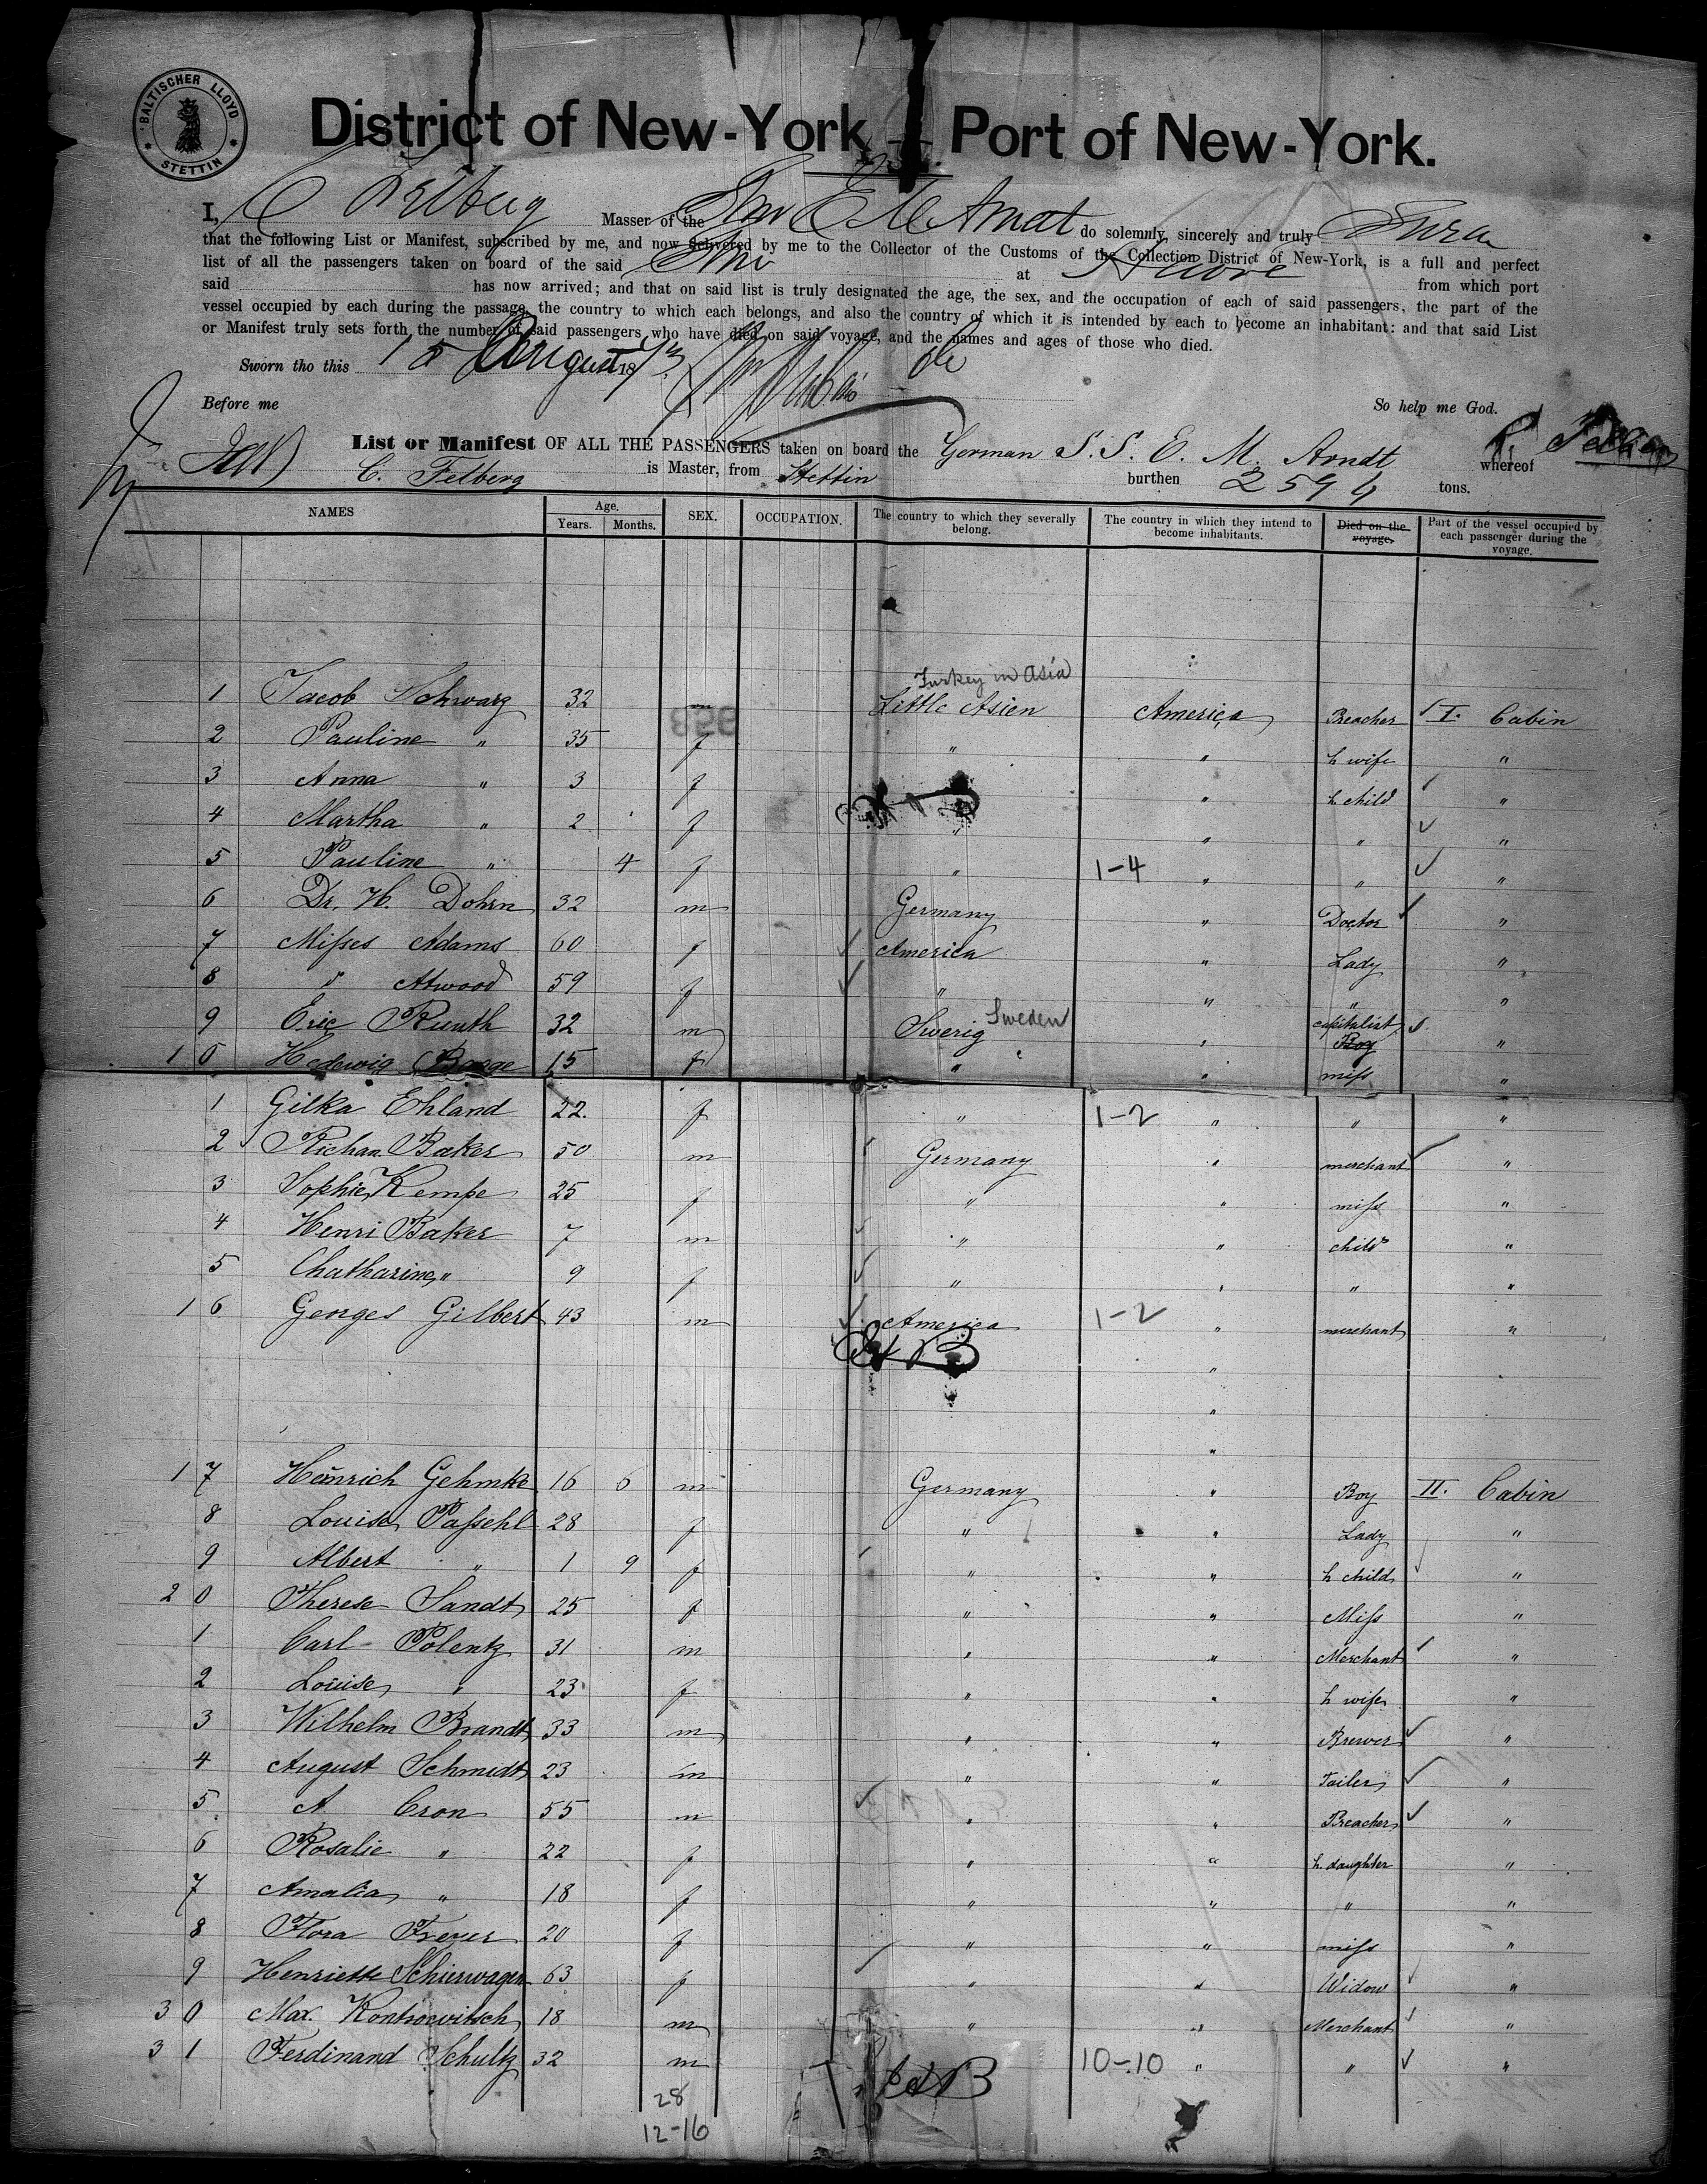 BALTISCHER LLOYD
STETTIN
District of New-York Port of New-York.
I, C Felberg Masser of the Stmr E M Arndt do solemnly, sincerely and truly Swear
that the following List or Manifest, subscribed by me, and now delivered by me to the Collector of the Customs of the Collection District of New-York, is a full and perfect
list of all the passengers taken on board of the said Stmr at Havre from which port
said has now arrived; and that on said list is truly designated the age, the sex, and the occupation of each of said passengers, the part of the
vessel occupied by each during the passage, the country to which each belongs, and also the country of which it is intended by each to become an inhabitant: and that said List
or Manifest truly sets forth the number of said passengers who have died on said voyage, and the names and ages of those who died.
Sworn tho this 15 August 1873
Before me So help me God.
List or Manifest OF ALL THE PASSENGERS taken on board the German S. S. E. M. Arndt whereof
C. Felberg is Master, from Stettin burthen 2599 tons.
NAMES Age. Years. Months. SEX. OCCUPATION. The country to which they severally belong. The country in which they intend to become inhabitants. Died on the voyage. Part of the vessel occupied by each passenger during the voyage.
Turkey in Asia
1 Jacob Schwarz 32 m Little Asien America Preacher I. Cabin
2 Pauline " 35 f " " h wife "
3 Anna " 3 f " h child "
4 Martha " 2 f " " " "
5 Pauline " 4 f " 1-4 " " "
6 Dr. H. Dohrn 32 m Germany " Doctor "
7 Misses Adams 60 f America " Lady "
8 " Atwood 59 f " " " "
9 Eric Ruuth 32 m Swerig Sweden " capitalist Boy "
10 Hedwig Baage 15 f " " miss "
1 Gilka Ehland 22. f " 1-2 " " "
2 Richan. Baker 50 m Germany " merchant "
3 Sophie Kempe 25 f " " miss "
4 Henri Baker 7 m " " child "
5 Chatharine " 9 f " " " "
16 Georges Gilbert 43 m America 1-2 " merchant "
"
"
"
17 Heinrich Gehmke 16 6 m Germany " Boy II. Cabin
8 Louise Passehl 28 f " " Lady "
9 Albert " 1 9 f " " h child "
20 Therese Sandt 25 f " " Miss "
1 Carl Polentz 31 m " " Merchant "
2 Louise " 23 f " " h wife "
3 Wilhelm Brandt 33 m " " Brewer "
4 August Schmidt 23 m " " Tailer "
5 A. Cron 55 m " " Preacher "
6 Rosalie " 22 f " " h daughter "
7 Amalia " 18 f " " " "
8 Flora Freyer 20 f " " miss "
9 Henriette Schierwagen 63 f " " Widow "
30 Max. Kontrowitsch 18 m " " Merchant "
31 Ferdinand Schultz 32 m 10-10 " " "
28
12-16